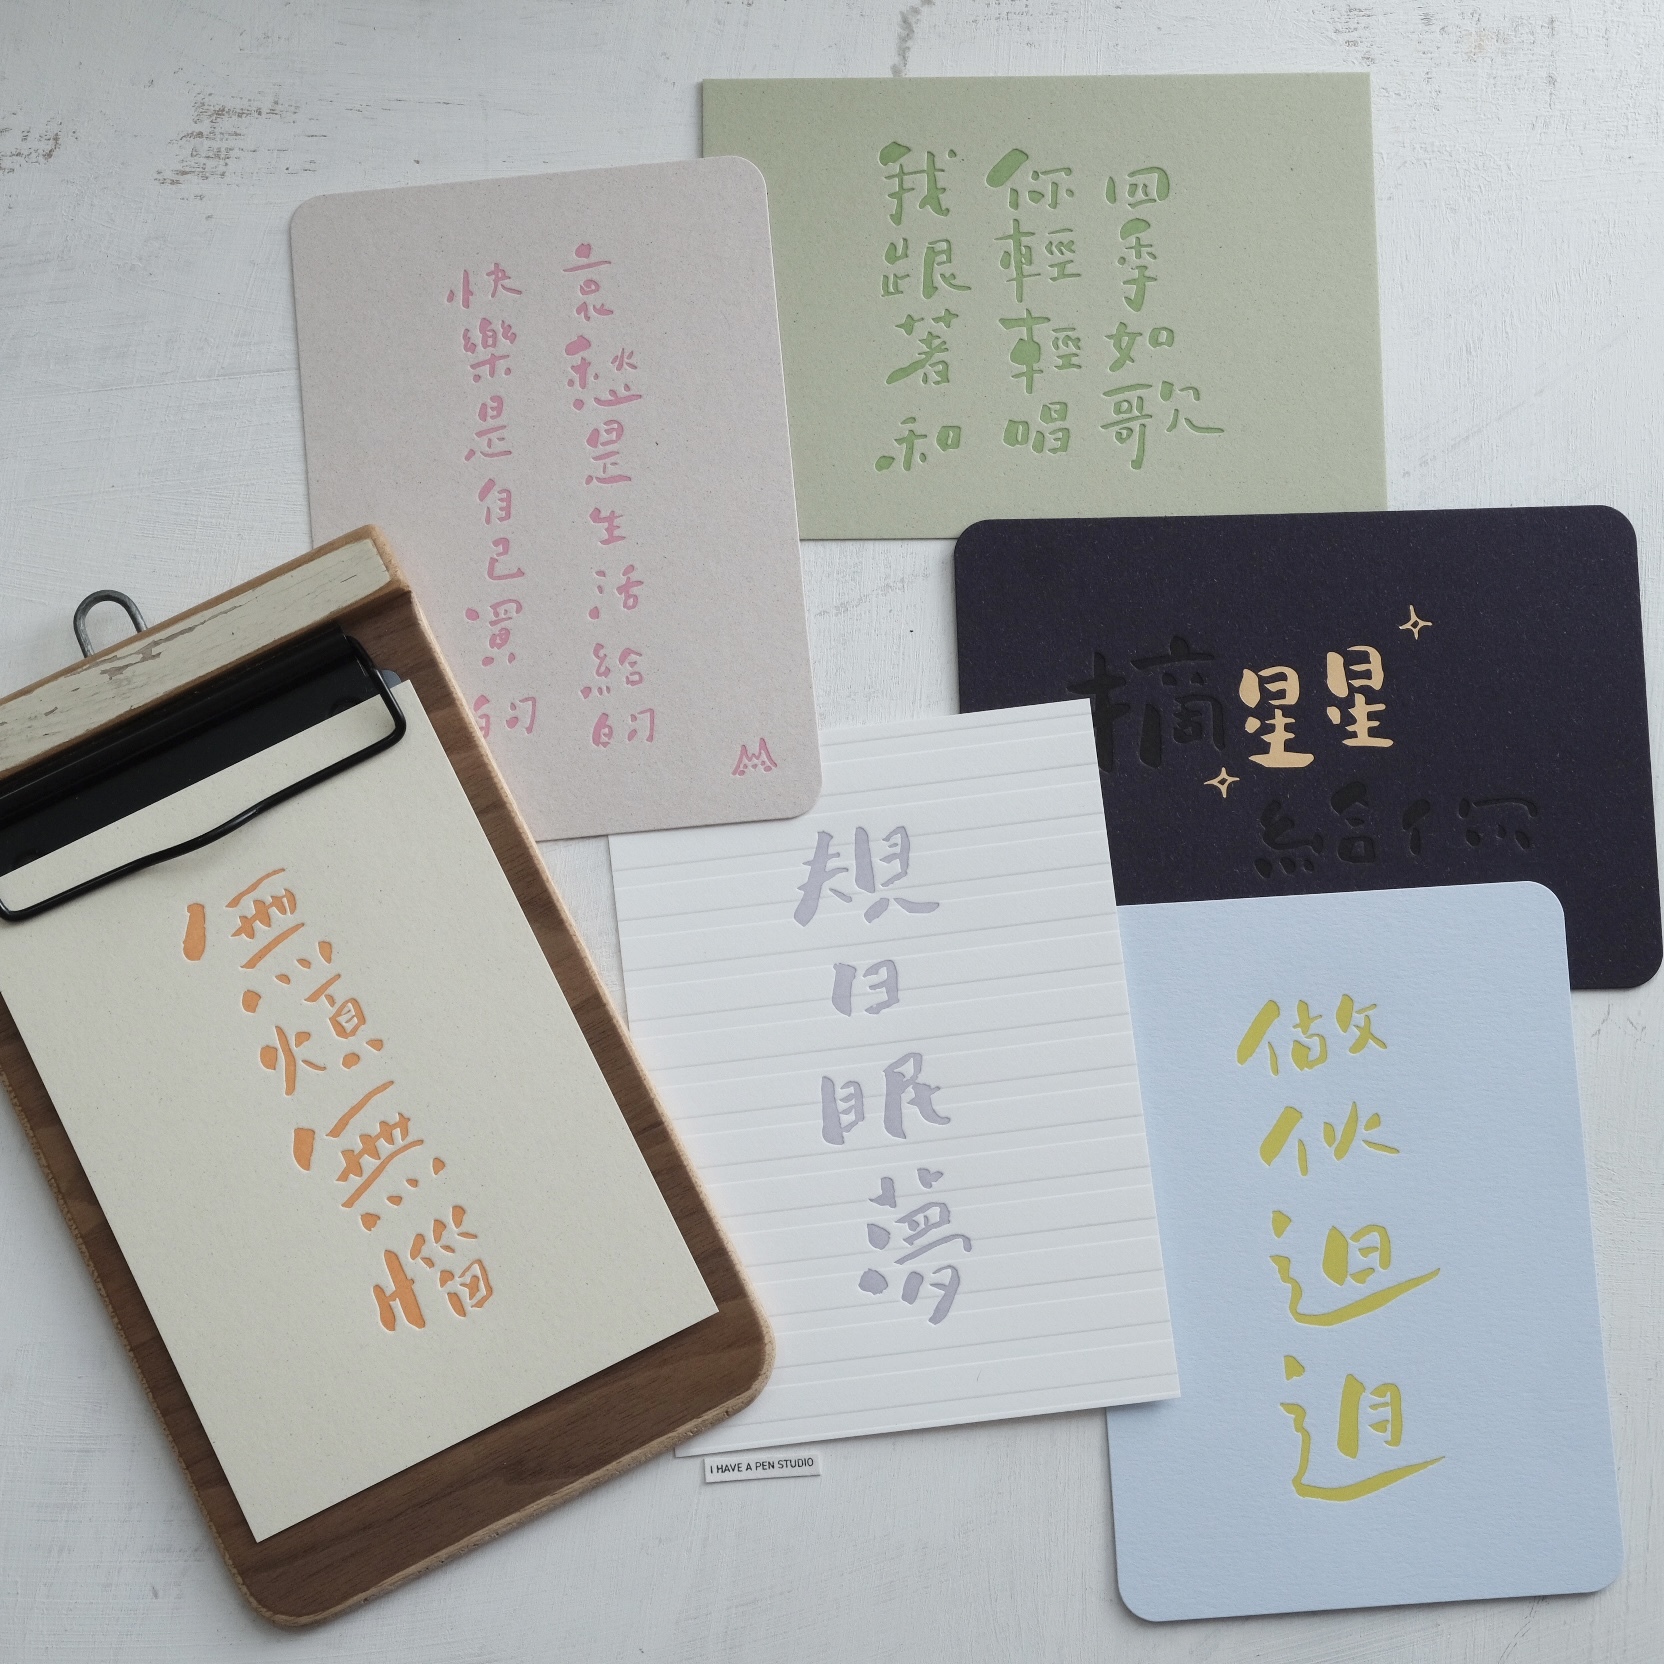 哀愁是生活給的
快樂是自己買的
四季如歌
你輕輕唱
我跟著和
摘星星
給你
無煩無惱
規日眠夢
做伙𨑨迌
I HAVE A PEN STUDIO